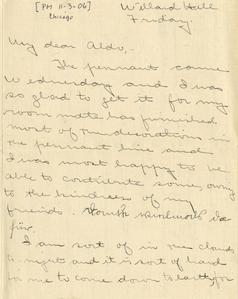 [PM 11-3-06]
Chicago
Willard Hall
Friday.
My dear Aldo,-
The pennant came
Wednesday and I was
so glad to get it for my
room mate has furnished
most of the decorations in
the pennant line and
I was most happy to be
able to contribute some, owing
to the kindness of my
friends.
fine.
I am sort of in the clouds
to-night and it is sort of hard
for me to come down to earth, for